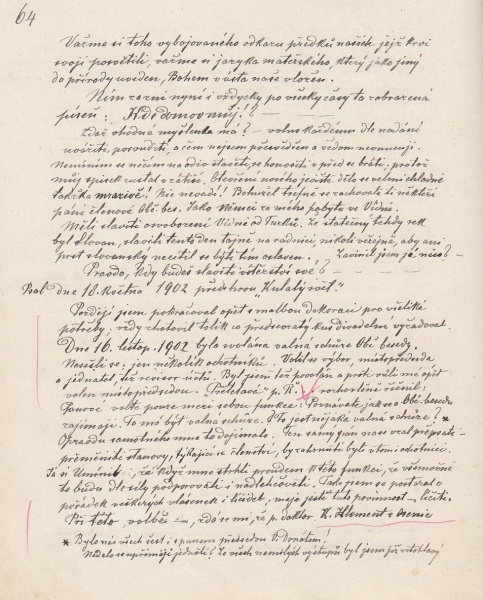 64
Važme si toho vybojovaného odkazu předků našich, jejž krví
svojí posvětili, važme si jazyka mateřského, který jako jiný
do přírody uveden, Bohem v ústa naše vložen.
Nám zazní nyní i vždycky po všeky časy ta zobrazená
píseň: Kde domov můj!?
Zdaž vhodna myšlenka má? – volno každému dle nadání
uvážiti, posouditi, a čem nejsem přesvědčen a vědom neomouvaji.
Nemíním se něčím na odiv stavěti, se honositi v před se bráti; protož
můj spisek zůstal v zátiší. Otevření nového jeviště dělo se velmi chladně
takřka mrazivě! Nic nevadí! Bohužel stejně se zachovali ti někteří
páni členové Obč. bes. Jako Němci za mého pobytu ve Vídni.
Měli slaviti osvobození Vídně od Turků. Že statečný tehdy rek
byl Slovan, slavili tento den tajně na radnici, nikoli veřejně, aby ani
prost slovanský necítil se býti tím oslaven! Zavinil jsem já něco?
Pravdo, kdy budeš slaviti vítězství své?
Psal dne 18. května 1902 před hrou „Kulatý svět".
Později jsem pokračoval opět s malbou dekorací pro veliké
potřeby; vždy zhotovil tolik co předsevzatý kus divadelní vyžadoval.
Dne 16. listop. 1902 byla svolána valná schůze Obč. besedy.
Nesešli se: jen několik ochotníků. Volil se výbor, místopředseda
a jednatel, též revisor účtů. Byl jsem též povolán a proti vůli mé opět
volen místopředsedou. p. R. rozhorleně řečnil:
Panové volte pouze mezi sebou funkce. Poznáváte jak se o Obč. besedu
zajímají. To má být valná schůze? I to jest nějaká valná schůze? *
Opravdu samotného mne to dojímalo. Ten samý pán zase vzal přepsati
přeměniti stanovy, týkající se členstva, by zahrnuti byli v tom i ochotníci.
že když mne strhli proudem k této funkci, že všemožně
to budu dle síly podporovati i nadlehčovati. Tak jsem se postaral o
pořádek veškerých vlásenek i líčidel, maje ještě tuto povinnost – líčiti.
Při této volbě –, zdá se mi, že p. doktor K. Klement z Osenic
* Bylo nás všech šest, i s panem předsedou P. Donatem!
Nedalo se upřímněji jednati. Ze všech nemilých výstupů byl jsem již